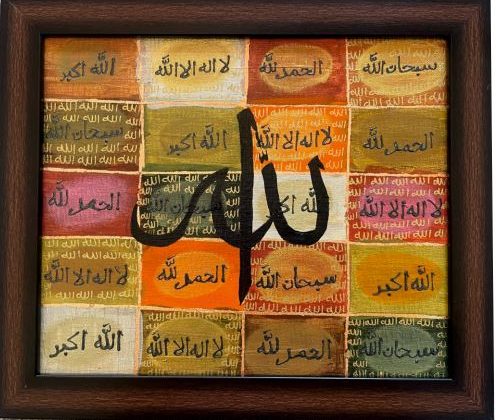 سبحان الله الحمد لله لا اله الا الله الله اكبر
الحمد لله لا اله الا الله الله اكبر سبحان الله
لا اله الا الله الله اكبر سبحان الله الحمد لله
الله اكبر سبحان الله الحمد لله لا اله الا الله
سبحان الله الحمد لله لا اله الا الله الله اكبر
الله